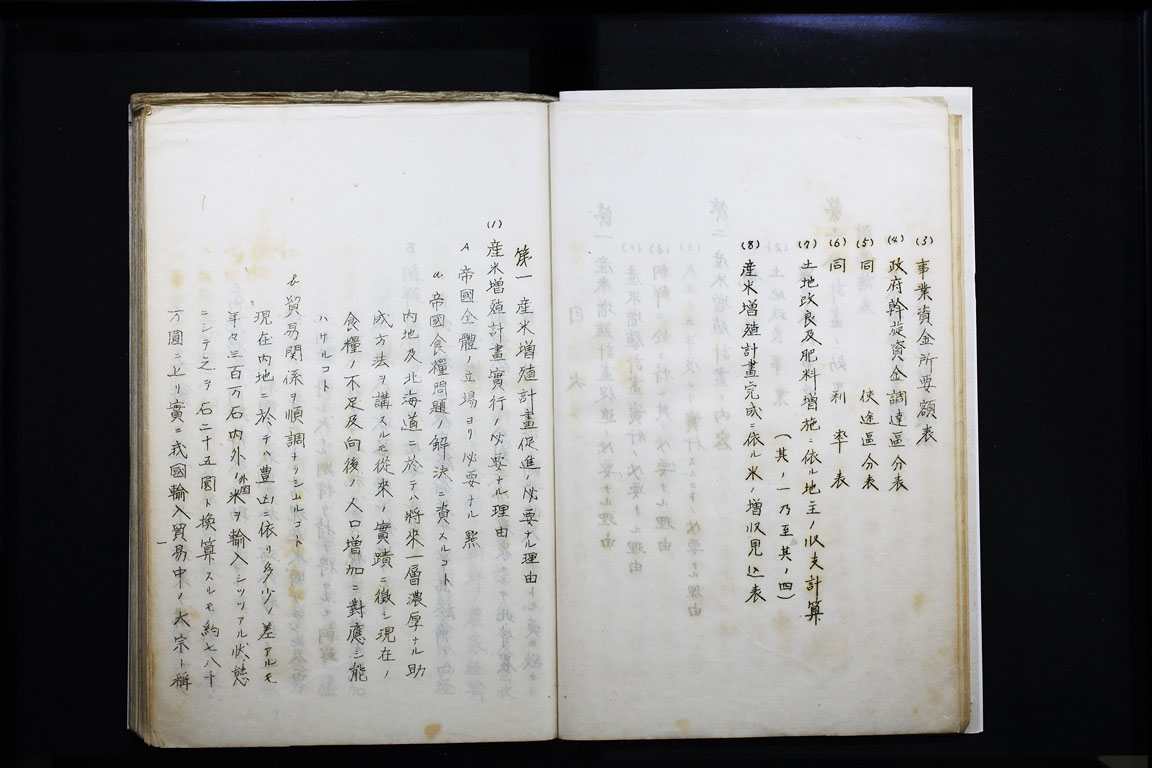 (3) 事業資金所要額表
(4) 政府斡旋資金調達區分表
(5) 同 使途區分表
(6) 同 利率表
(7) 土地改良及肥料増施ニ依ル地主ノ收支計算
(其ノ一乃至其ノ四)
(8) 産米増殖計畫完成ニ依ル米ノ増收見込表
第一 産米増殖計畫促進ノ必要ナル理由
(1) 産米増殖計畫實行ノ必要ナル理由
A 帝國全體ノ立場ヨリ必要ナル點
a 帝國食糧問題ノ解決ニ資スルコト
内地及北海道ニ於テハ將來一層濃厚ナル助
成方法ヲ講スルモ從來ノ實蹟ニ徴シ現在ノ
食糧ノ不足及向後ノ人口増加ニ對應シ能
ハサルコト
b 貿易関係ヲ順調ナラシムルコト
現在内地ニ於テハ豊凶ニ依リ多少ノ差アルモ
年々三百万石内外ノ外國米ヲ輸入シツツアル状態
ニシテ之ヲ石二十五圓ト換算スルモ約七八千
万圓ニ上リ實ニ我國輸入貿易中ノ大宗ト稱